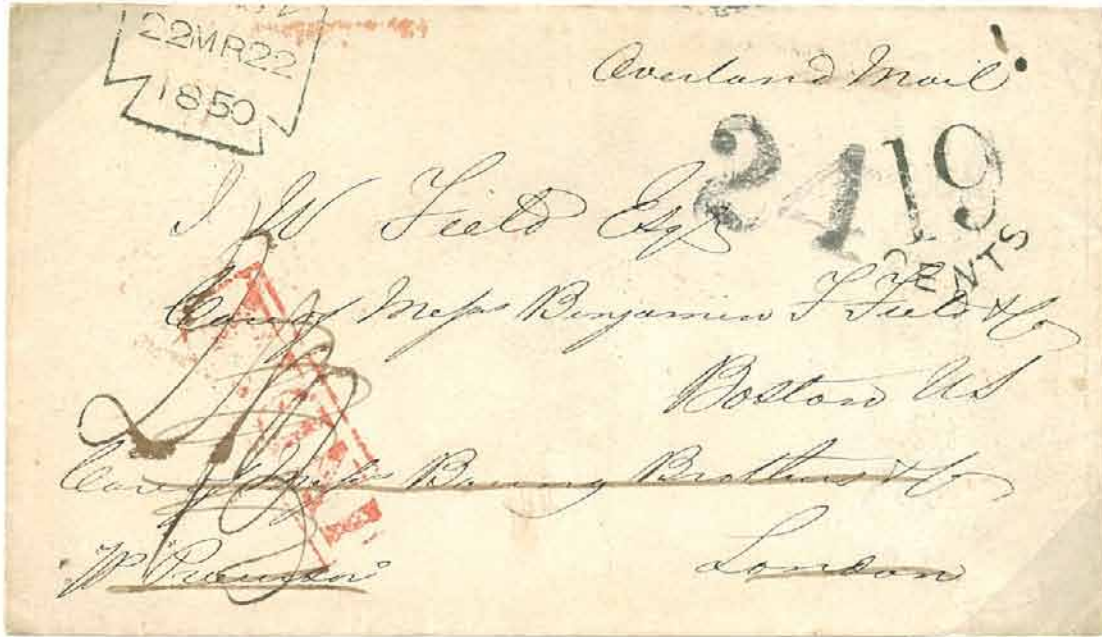 22MR22
1850
Overland Mail
24 19
CENTS
J W Field Esqr
Care of Messrs Benjamin F Field & Co
Boston US
Care of Messrs Baring Brothers & Co
London